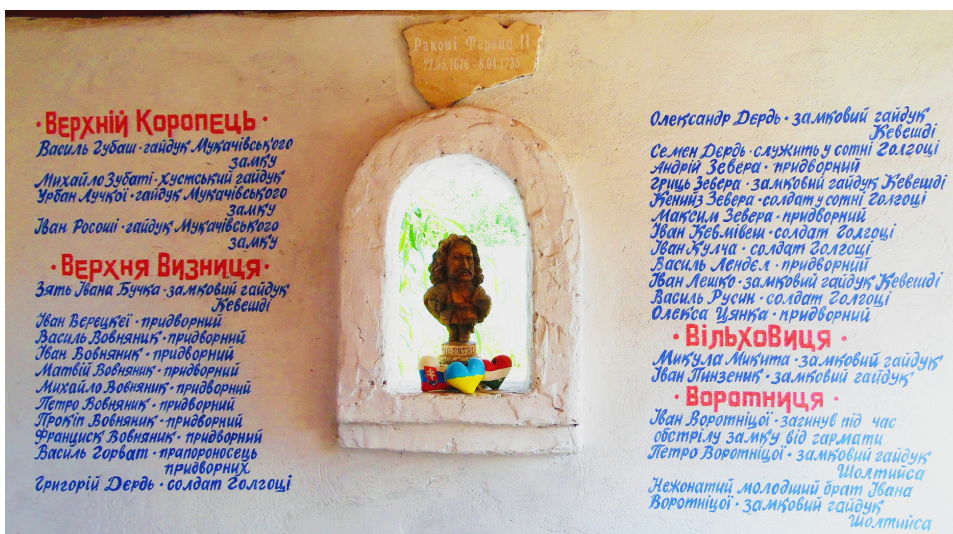 Ракоці Ференц II
27.03.1676 - 8.04.1735
· Верхній Коропець ·
Василь Губаш · гайдук Мукачівського
замку
Михайло Зубаті · хустський гайдук
Урбан Лучкої · гайдук Мукачівського
замку
Іван Росоші · гайдук Мукачівського
замку
· Верхня Визниця ·
Зять Івана Бучка · замковий гайдук
Кевешді
Іван Верецкеї · придворний
Василь Вовняник · придворний
Іван Вовняник · придворний
Матвій Вовняник · придворний
Михайло Вовняник · придворний
Петро Вовняник · придворний
Прокіп Вовняник · придворний
Франциск Вовняник · придворний
Василь Горват · прапороносець
придворних
Григорій Дєрдь · солдат Голгоці
Олександр Дєрдь · замковий гайдук
Кевешді
Семен Дєрдь · служить у сотні Голгоці
Андрій Зевера · придворний
Гриць Зевера · замковий гайдук Кевешді
Кениз Зевера · солдат у сотні Голгоці
Максим Зевера · придворний
Іван Кевмівеш · солдат Голгоці
Іван Кулча · солдат Голгоці
Василь Лендєл · придворний
Іван Лешко · замковий гайдук Кевешді
Василь Русин · солдат Голгоці
Олекса Цянка · придворний
· Вільховиця ·
Микула Микита · замковий гайдук
Іван Пинзеник · замковий гайдук
· Воротниця ·
Іван Воротніцої · загинув під час
обстрілу замку від гармати
Петро Воротніцої · замковий гайдук
Шолтийса
Нежонатий молодший брат Івана
Воротніцої · замковий гайдук
Шолтийса